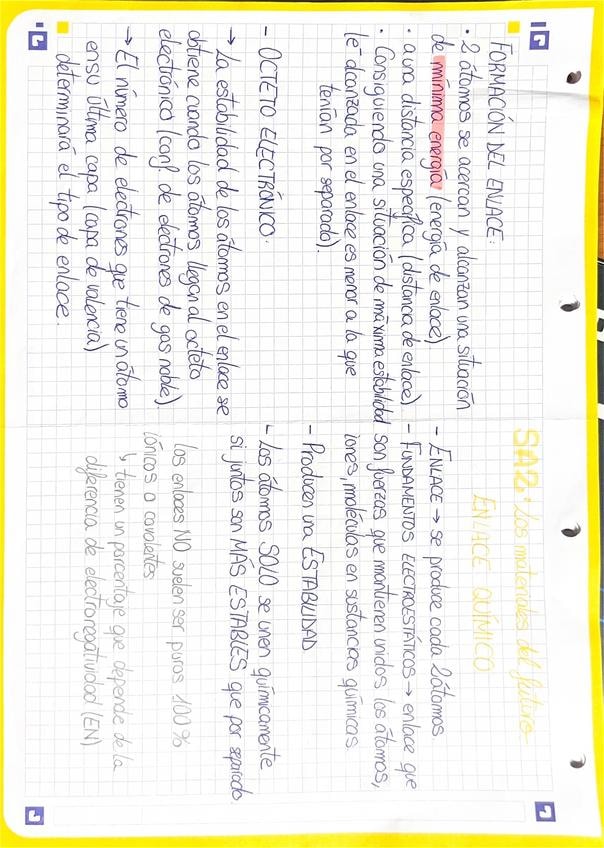 FORMACIÓN DEL ENLACE:
· 2 átomos se acercan y alcanzan una situación
de mínima energía (energía de enlace).
· a una distancia específica (distancia de enlace)
· Consiguiendo una situación de máxima estabilidad
(e⁻ alcanzada en el enlace es menor a la que
tenían por separado).
- OCTETO ELECTRÓNICO.
→ La estabilidad de los átomos en el enlace se
obtiene cuando los átomos llegan al octeto
electrónico (conf. de electores de gas noble).
→ El número de electrones que tiene un átomo
en su última capa (capa de valencia)
determinará el tipo de enlace.
SA2: Los materiales del futuro
ENLACE QUÍMICO
- ENLACE → se produce cada 2 átomos.
- FUNDAMENTOS ELECTROESTÁTICOS → enlace que
son fuerzas que mantienen unidos los átomos,
iones, moléculas en sustancias químicas
- Producen una ESTABILIDAD
↳ Los átomos SOLO se unen químicamente
si juntos son MÁS ESTABLES que por separado.
Los enlaces NO suelen ser puros 100%
iónicos o covalentes
↳ tienen un porcentaje que depende de la
diferencia de electronegatividad (EN)